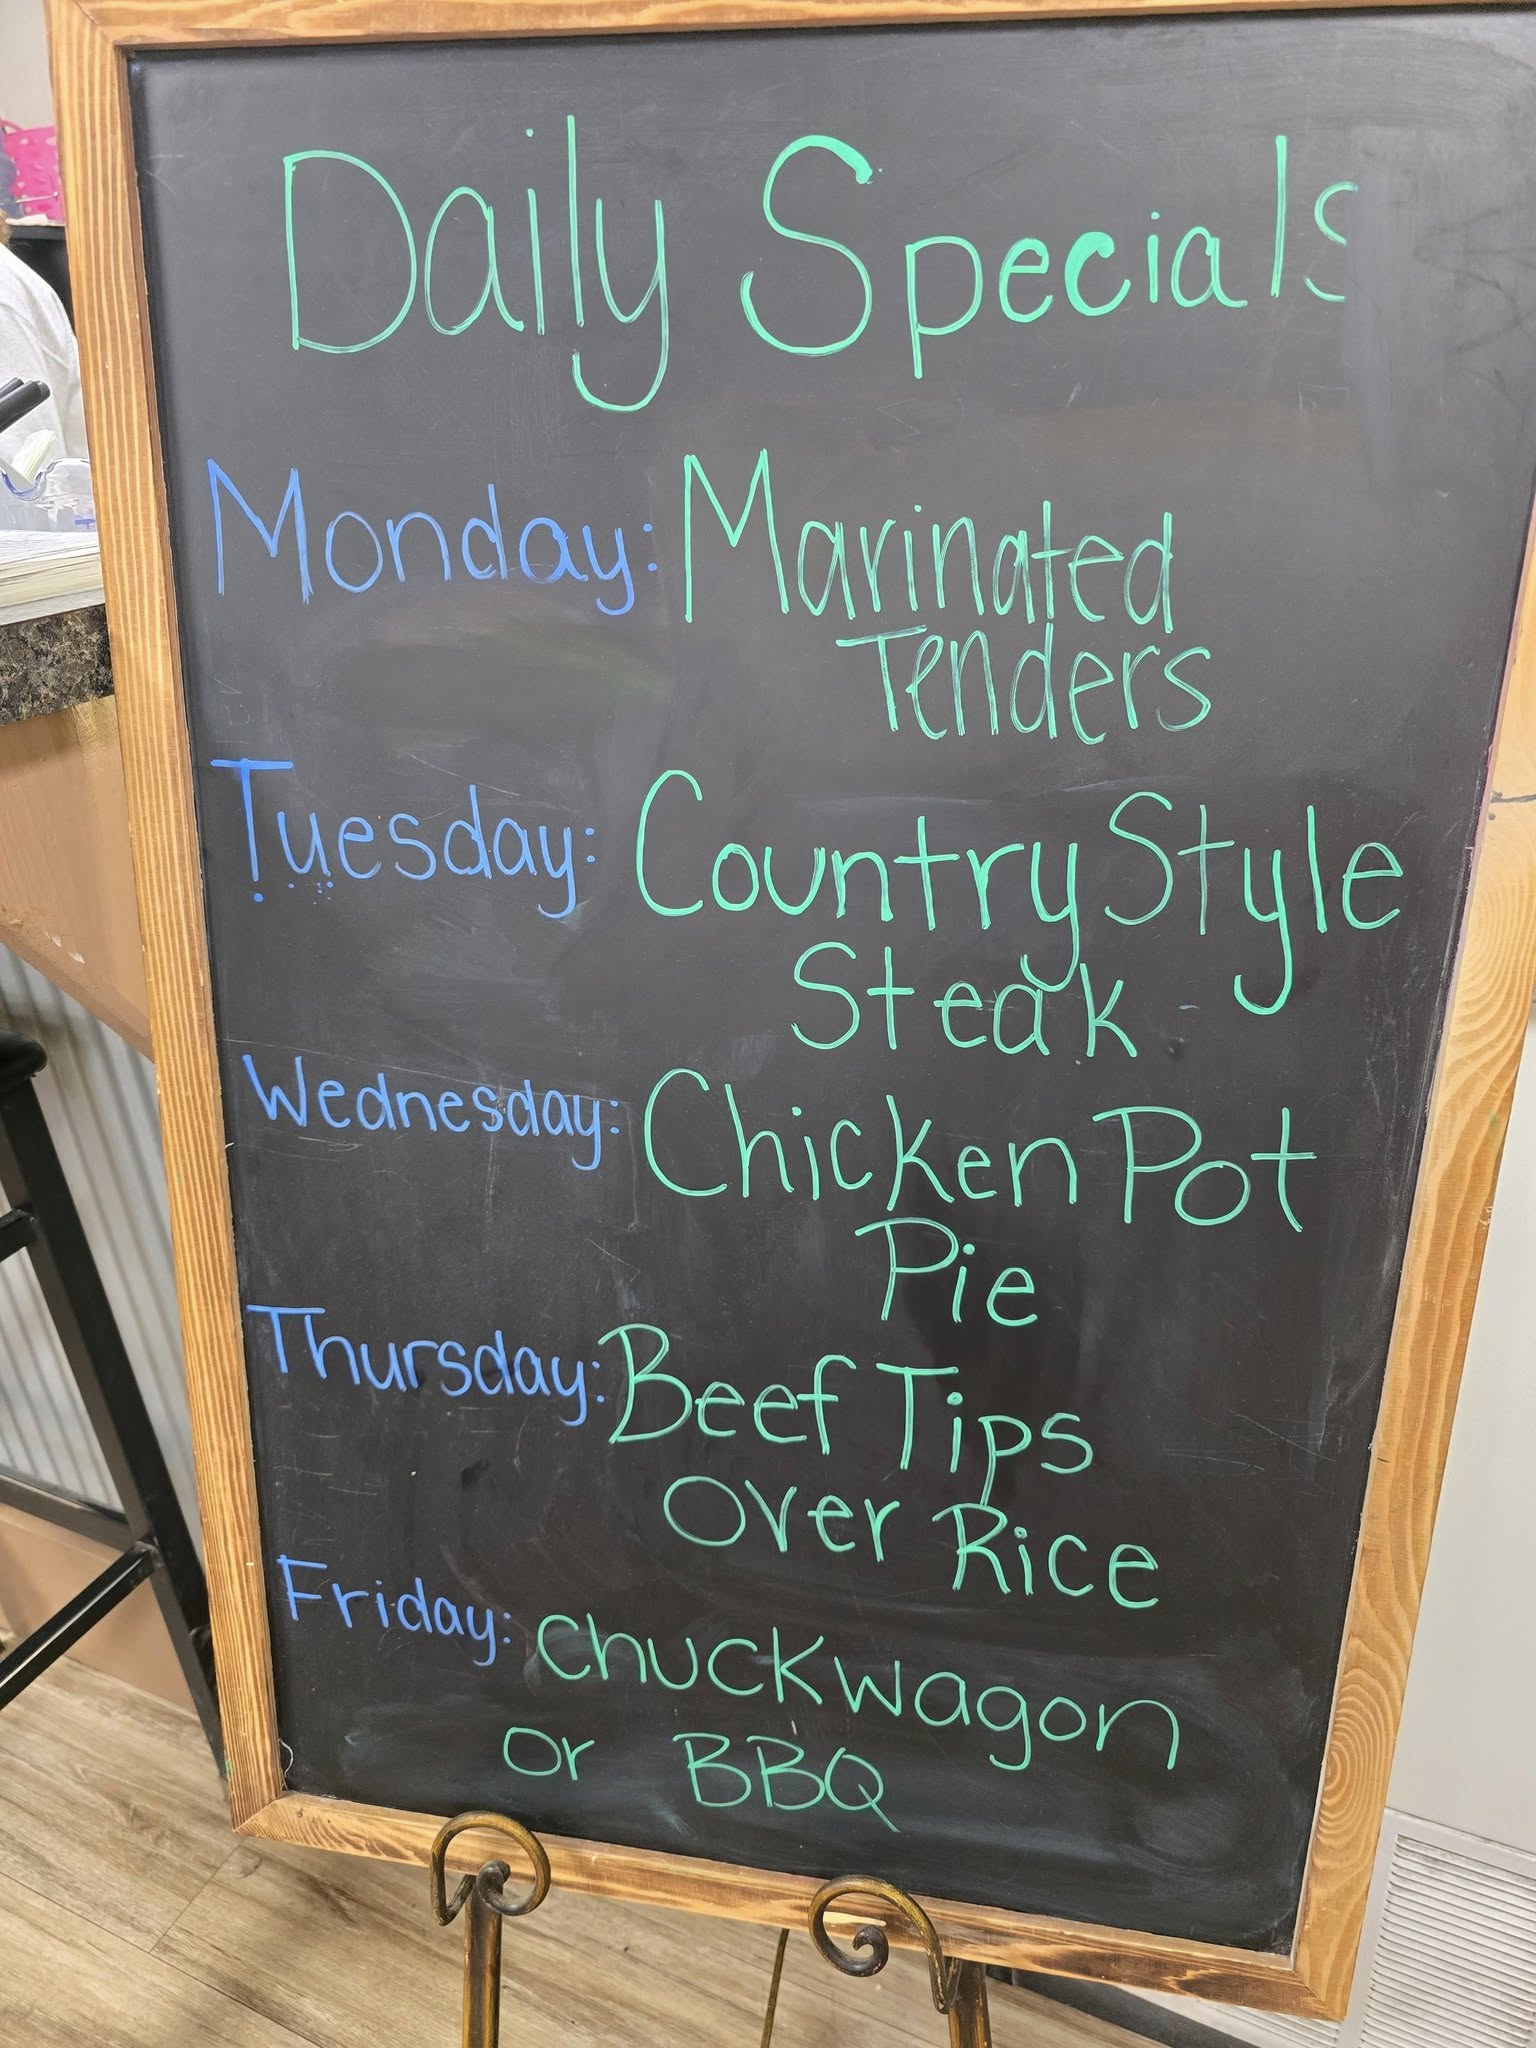 Daily Specials
Monday: Marinated
Tenders
Tuesday: Country Style
Steak
Wednesday: Chicken Pot
Pie
Thursday: Beef Tips
Over Rice
Friday: Chuckwagon
or BBQ